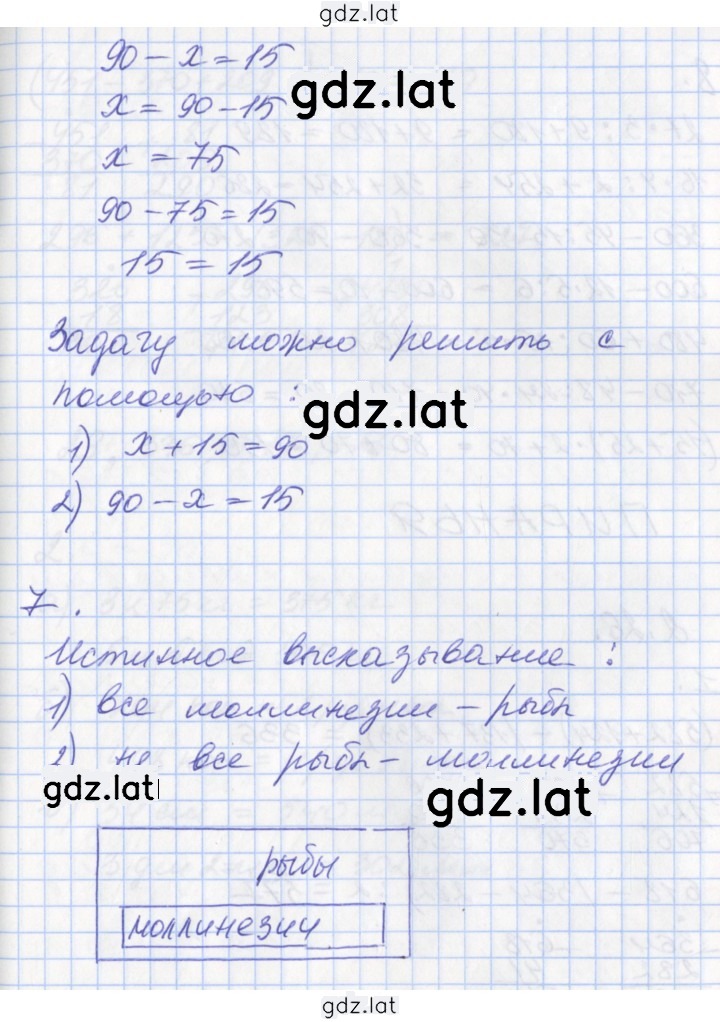 gdz.lat
90 - x = 15
gdz.lat
x = 90 - 15
x = 75
90 - 75 = 15
15 = 15
Задачу можно решить с
помощью :
gdz.lat
1) x + 15 = 90
2) 90 - x = 15
7.
Истинное высказывание :
1) все моллинезии - рыбы
2) не все рыбы - моллинезии
gdz.lat
gdz.lat
рыбы
моллинезии
gdz.lat